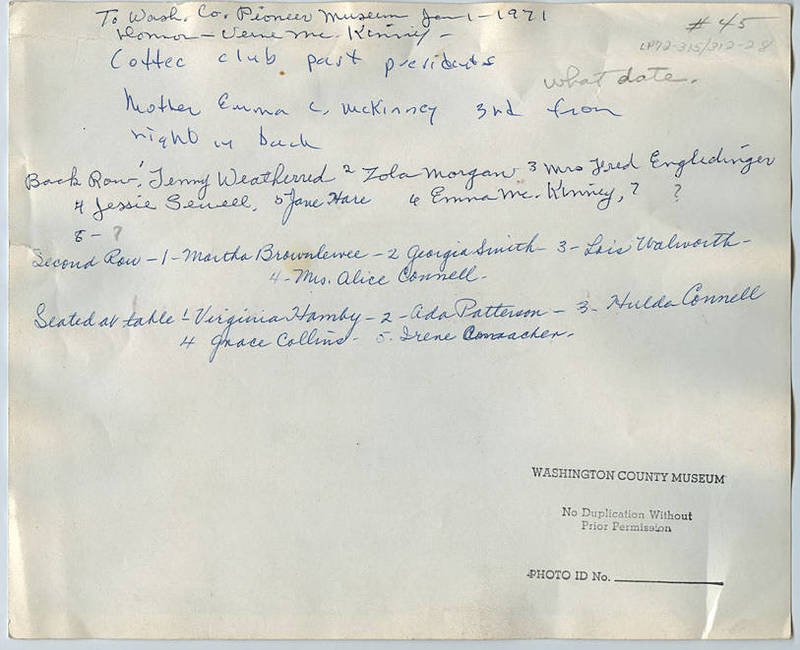 To Wash. Co. Pioneer Museum Jan-1-1971
# 45
Donor - Verne Mc. Kinney -
LP72-315/312-28
Coffee club past presidents
what date.
Mother Emma C. McKinney 3rd from
right in back
Back Row! Jenny Weatherred 2 Zola Morgan 3 Mrs Fred Engledinger
4 Jessie Sewell, 5 Jane Hare 6 Emma Mc. Kinney, 7 ?
8 - ?
Second Row - 1 - Martha Brownlewee - 2 Georgia Smith - 3 - Lois Walworth -
4 - Mrs. Alice Connell -
Seated at table 1 - Virginia Hamby - 2 - Ada Patterson - 3 - Hulda Connell
4 Grace Collins - 5. Irene
WASHINGTON COUNTY MUSEUM
No Duplication Without
Prior Permission
PHOTO ID No.